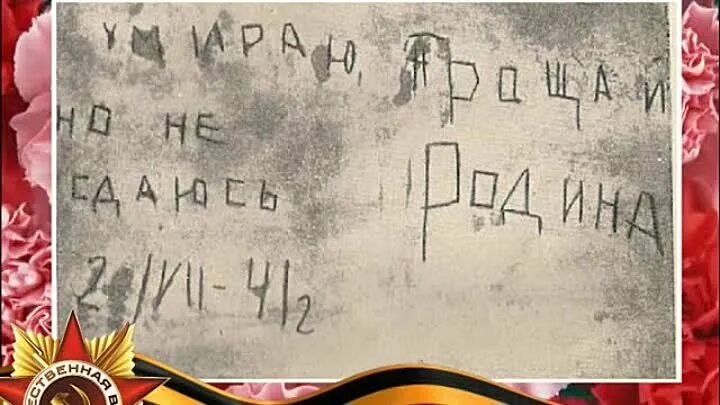 УМИРАЮ,
НО НЕ
СДАЮСЬ
ПРОЩАЙ
РОДИНА
20/VII-41г
ЕСТВЕННАЯ В